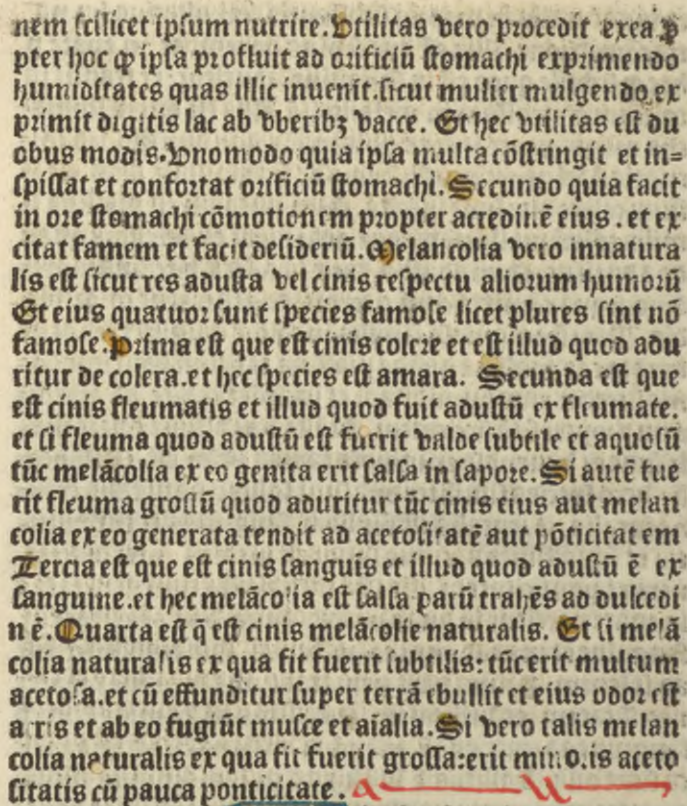 nem scilicet ipsum nutrire. Utilitas vero procedit ex ea ꝓ
pter hoc ꝙ ipsa profluit ad orificiū stomachi exprimendo
humiditates quas illic inuenit. sicut mulier mulgendo ex
primit digitis lac ab vberibꝫ vacce. Et hec vtilitas est du
obus modis. Uno modo quia ipsa multa cōstringit et in=
spissat et confortat orificiū stomachi. Secundo quia facit
in ore stomachi cōmotionem propter acredinē eius. et ex
citat famem et facit desideriū. Melancolia vero innatura
lis est sicut res adusta vel cinis respectu aliorum humorū
Et eius quatuor sunt species famose licet plures sint nō
famose. Prima est que est cinis colere et est illud quod adu
ritur de colera. et hec species est amara. Secunda est que
est cinis fleumatis et illud quod fuit adustū ex fleumate.
et si fleuma quod adustū est fuerit valde subtile et aquosū
tūc melācolia ex eo genita erit salsa in sapore. Si autē fue
rit fleuma grossū quod aduritur tūc cinis eius aut melan
colia ex eo generata tendit ad acetositatē aut pōticitatem
Tercia est que est cinis sanguis et illud quod adustū ē ex
sanguine. et hec melācolia est salsa parū trahēs ad dulcedi
nē. Quarta est q̄ est cinis melācolie naturalis. Et si melā
colia naturalis ex qua fit fuerit subtilis: tūc erit multum
acetosa. et cū effunditur super terrā ebullit et eius odor est
acris et ab eo fugiūt musce et aīalia. Si vero talis melan
colia naturalis ex qua fit fuerit grossa: erit minoris aceto
sitatis cū pauca ponticitate.